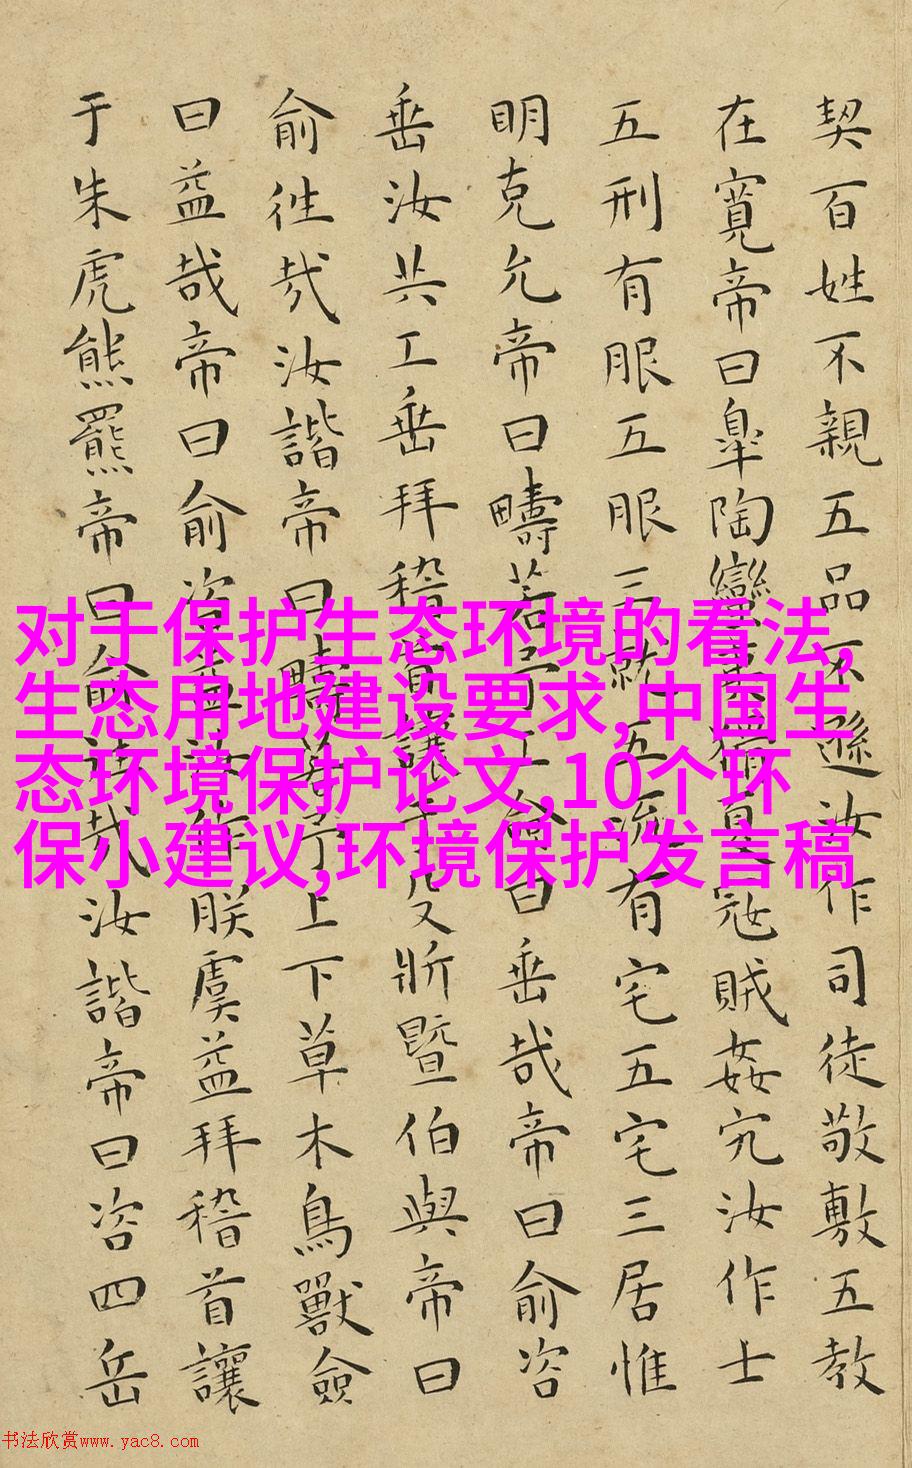 契百姓不親五品不遜汝作司徒敬敷五教
在寬帝曰皐陶蠻夷猾夏寇賊姦宄汝作士
五刑有服五服三就五流有宅五宅三居惟
明克允帝曰疇若予工僉曰垂哉帝曰俞咨
垂汝共工垂拜稽首讓于殳斨暨伯與帝曰
俞徃哉汝諧帝曰疇若予上下草木鳥獸僉
曰益哉帝曰俞咨益汝作朕虞益拜稽首讓
于朱虎熊羆帝曰俞徃哉汝諧帝曰咨四岳
对于保护生态环境的看法,
生态用地建设要求,中国生
态环境保护论文,10个环
保小建议,环境保护发言稿
书法欣赏www.yac8.com